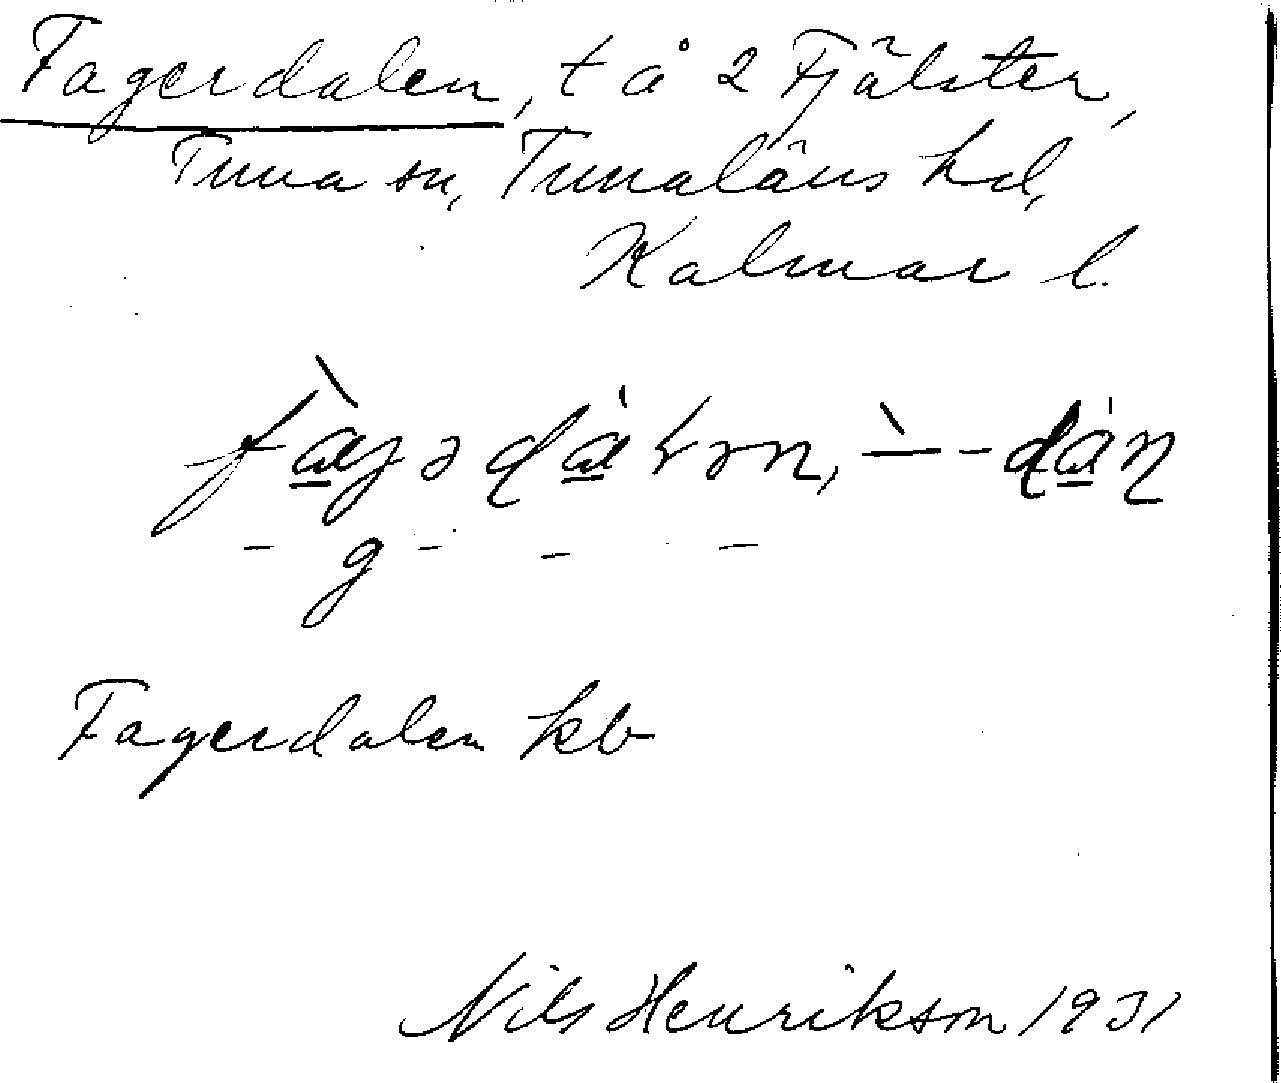 Fagerdalen, t å 2 Fjälster,
Tuna sn, Tunaläns hd,
Kalmar l.
g
Fagerdalen kb
Nils Henrikson 1931